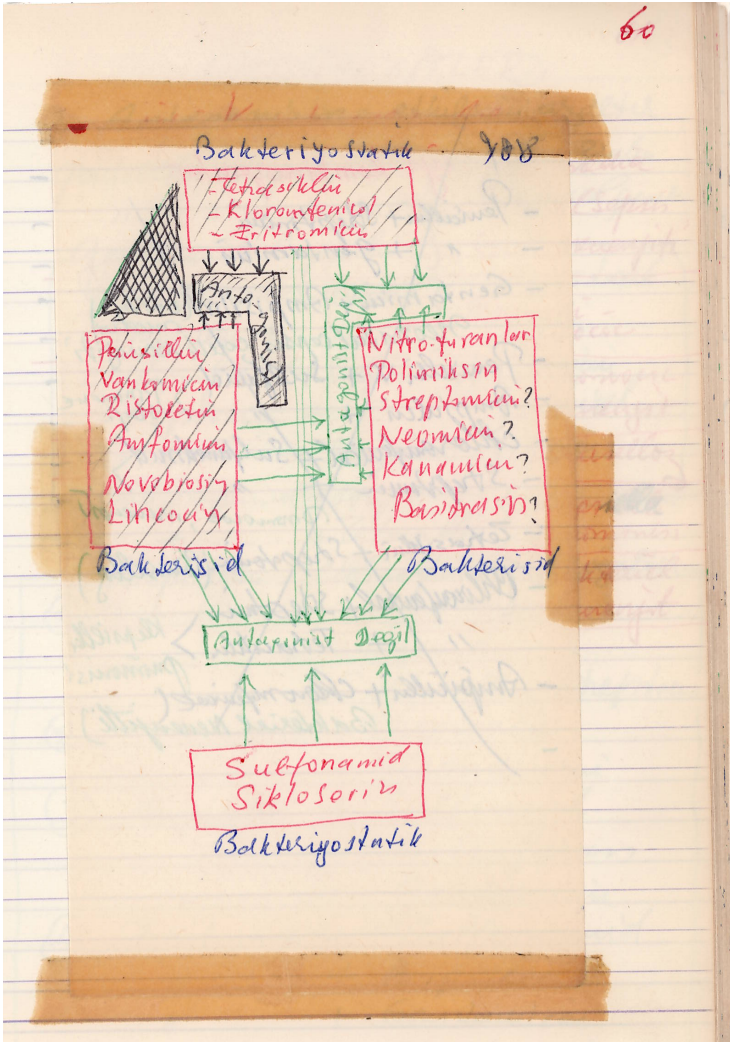 60
Bakteriyostatik
- Tetrasiklin
- Kloramfenicol
- Eritromicin
Antagonist
Antagonist Değil
Penisillin
Vankomicin
Ristocetin
Novobiosin
Lincocin
Bakterisid
Nitrofuranlar
Polimiksin
Streptomicin?
Neomicin?
Kanamicin?
Basidrasin?
Bakterisid
Antagonist Değil
Sulfonamid
Sikloserin
Bakteriyostatik